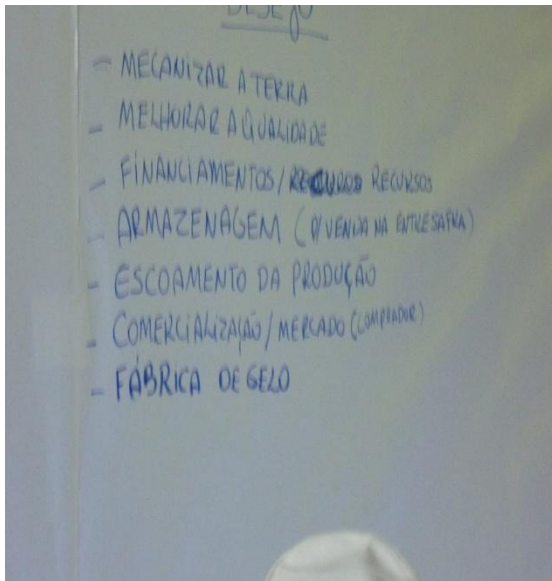 DESEJO
- MECANIZAR A TERRA
- MELHORAR A QUALIDADE
- FINANCIAMENTOS / RECURSOS
- ARMAZENAGEM (P/ VENDA NA ENTRESAFRA)
- ESCOAMENTO DA PRODUÇÃO
- COMERCIALIZAÇÃO / MERCADO (COMPRADOR)
- FÁBRICA DE GELO